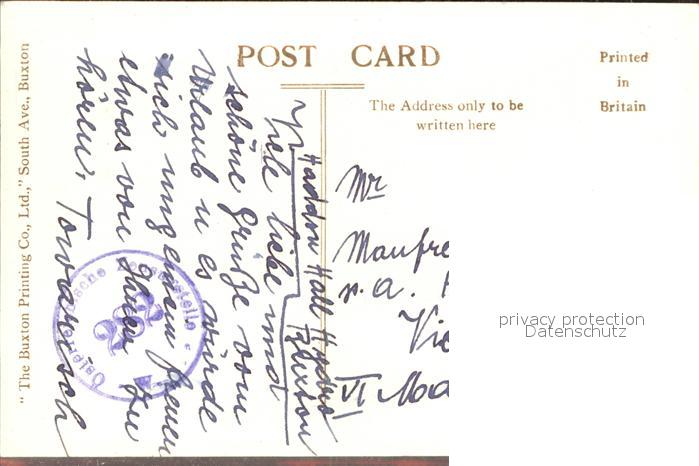 POST CARD
Printed
in
Britain
The Address only to be
written here
"The Buxton Printing Co., Ltd.," South Ave., Buxton
Haddon Hall Hydro
Buxton
Viele liebe und
schöne Grüße vom
Urlaub u es würde
mich ungemein freuen
etwas von Ihnen zu
hören,
Mr
Manfre
VI
Österreichische Zensurstelle
privacy protection
Datenschutz